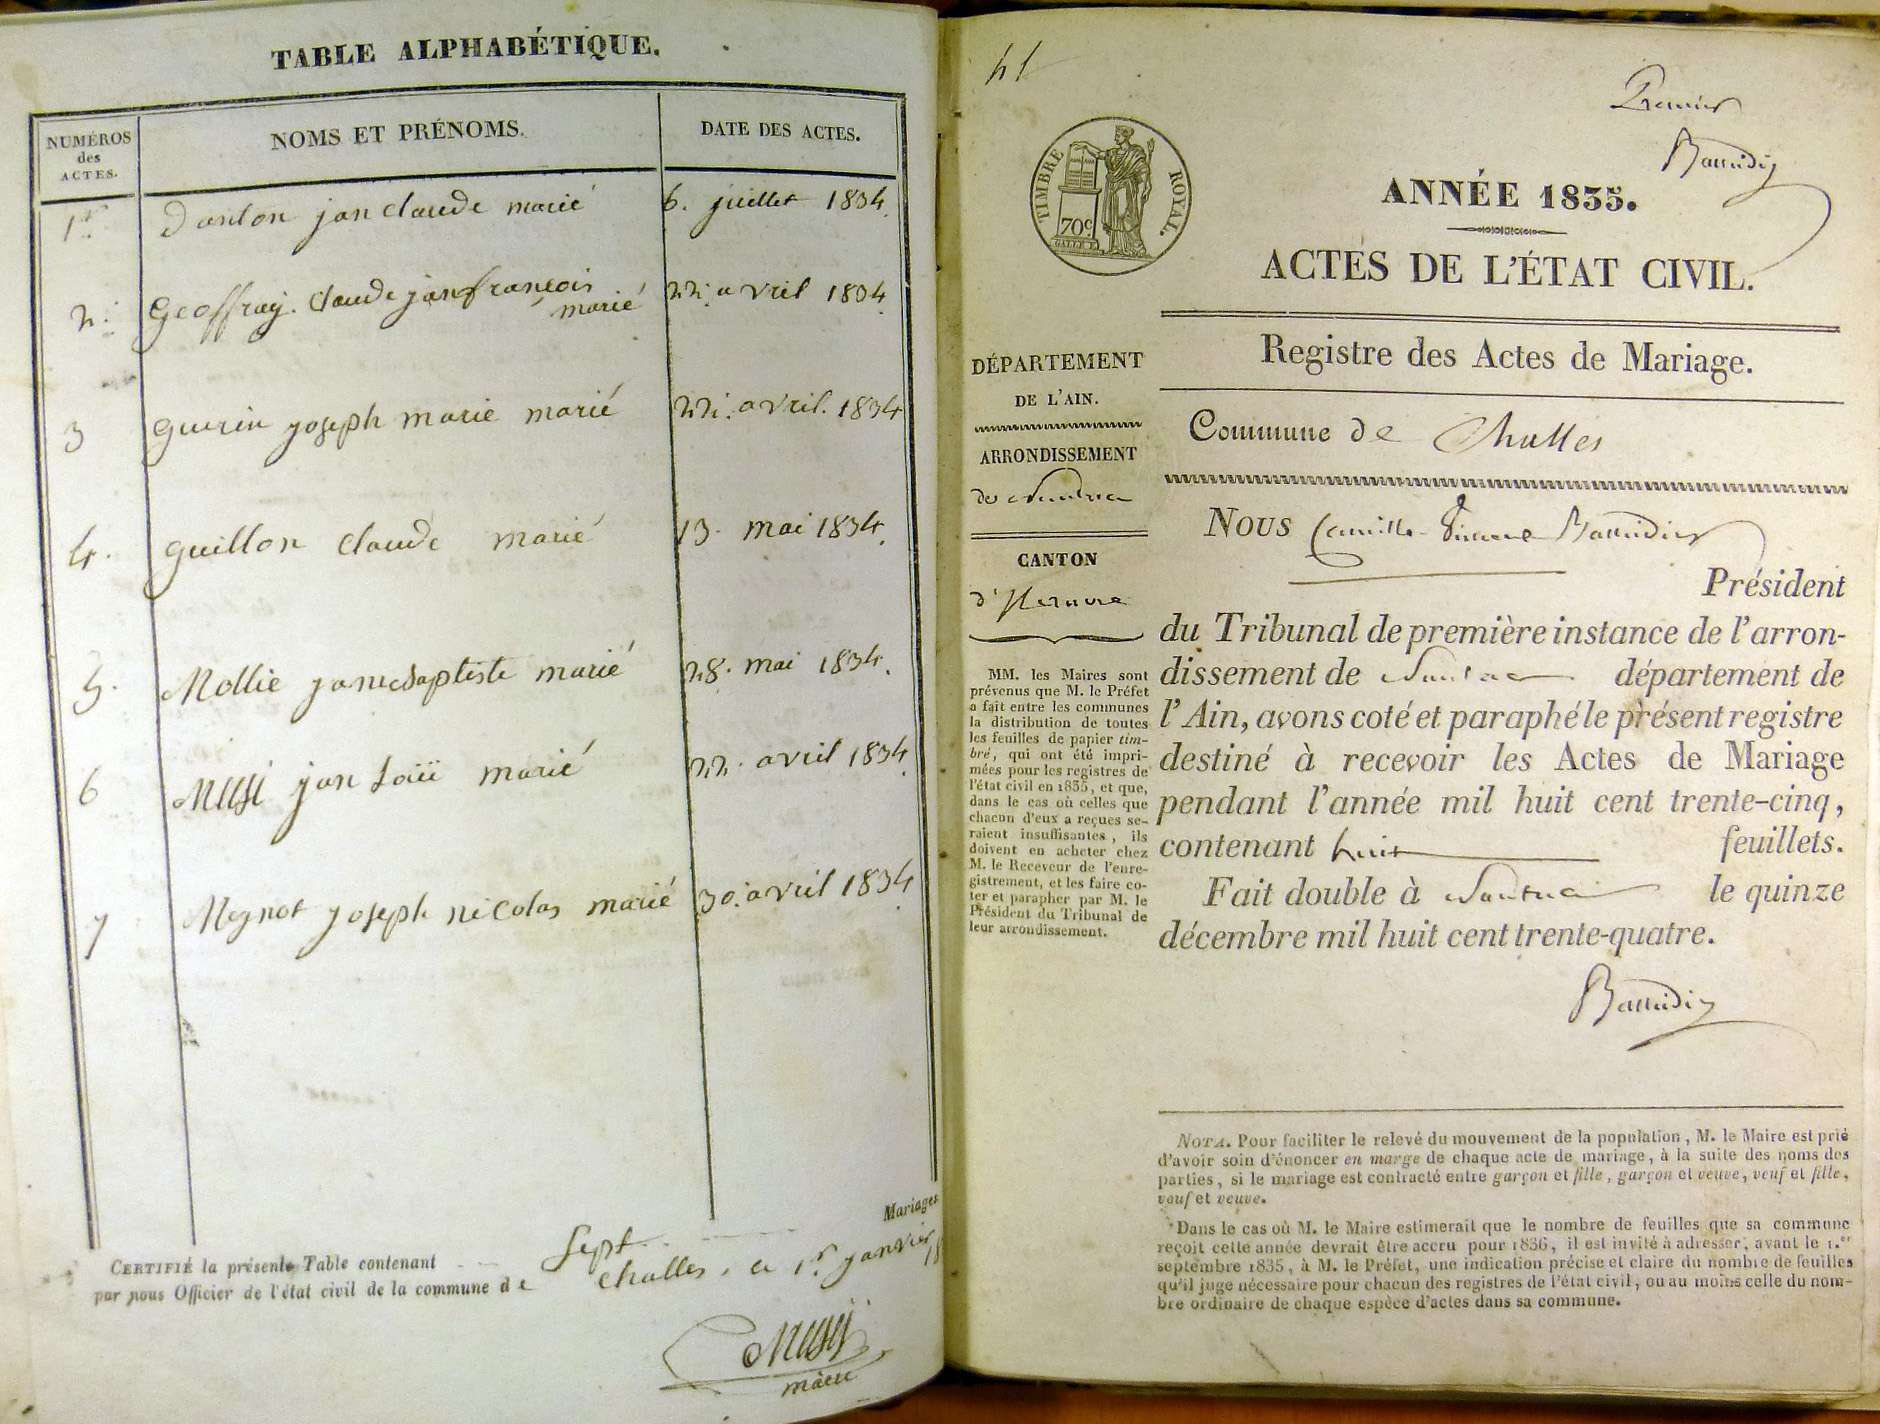 TABLE ALPHABÉTIQUE.
NUMÉROS
des
ACTES.
NOMS ET PRÉNOMS.
DATE DES ACTES.
1er danton jan claude marié 6. juillet 1834.
2. Geoffray. claude jan françois
marié 22. avril 1834
3 guerin joseph marie marié 22. avril. 1834
4. guillon claude marié 13. mai 1834.
5. Mollie jan baptiste marié 28. mai 1834.
6 jan Loüi marié 22. avril 1834
7 joseph nicolas marié 30. avril 1834
Mariages
CERTIFIÉ la présente Table contenant Sept
par nous Officier de l'état civil de la commune de challes, ce 1er janvier 18
maire
Premier
ANNÉE 1835.
TIMBRE ROYAL.
70c.
ACTES DE L'ÉTAT CIVIL.
Registre des Actes de Mariage.
DÉPARTEMENT
DE L'AIN.
ARRONDISSEMENT
de Nantua
CANTON
d'
MM. les Maires sont
prévenus que M. le Préfet
a fait entre les communes
la distribution de toutes
les feuilles de papier tim-
bré, qui ont été impri-
mées pour les registres de
l'état civil en 1835, et que,
dans le cas où celles que
chacun d'eux a reçues se-
raient insuffisantes, ils
doivent en acheter chez
M. le Receveur de l'enre-
gistrement, et les faire co-
ter et parapher par M. le
Président du Tribunal de
leur arrondissement.
Commune de Challes
Nous Camille
Président
du Tribunal de première instance de l'arron-
dissement de Nantua département de
l'Ain, avons coté et paraphé le présent registre
destiné à recevoir les Actes de Mariage
pendant l'année mil huit cent trente-cinq,
contenant huit feuillets.
Fait double à Nantua le quinze
décembre mil huit cent trente-quatre.
NOTA. Pour faciliter le relevé du mouvement de la population, M. le Maire est prié
d'avoir soin d'énoncer en marge de chaque acte de mariage, à la suite des noms des
parties, si le mariage est contracté entre garçon et fille, garçon et veuve, veuf et fille,
veuf et veuve.
Dans le cas où M. le Maire estimerait que le nombre de feuilles que sa commune
reçoit cette année devrait être accru pour 1836, il est invité à adresser, avant le 1.er
septembre 1835, à M. le Préfet, une indication précise et claire du nombre de feuilles
qu'il juge nécessaire pour chacun des registres de l'état civil, ou au moins celle du nom-
bre ordinaire de chaque espèce d'actes dans sa commune.